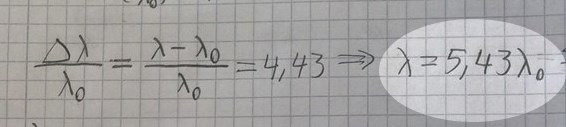 Δλ/λ₀ = λ-λ₀/λ₀ = 4,43 ⇒ λ = 5,43λ₀